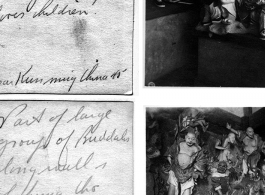 loves children.
near Kunming China 45
Part of large
group of Buddahs
along walls